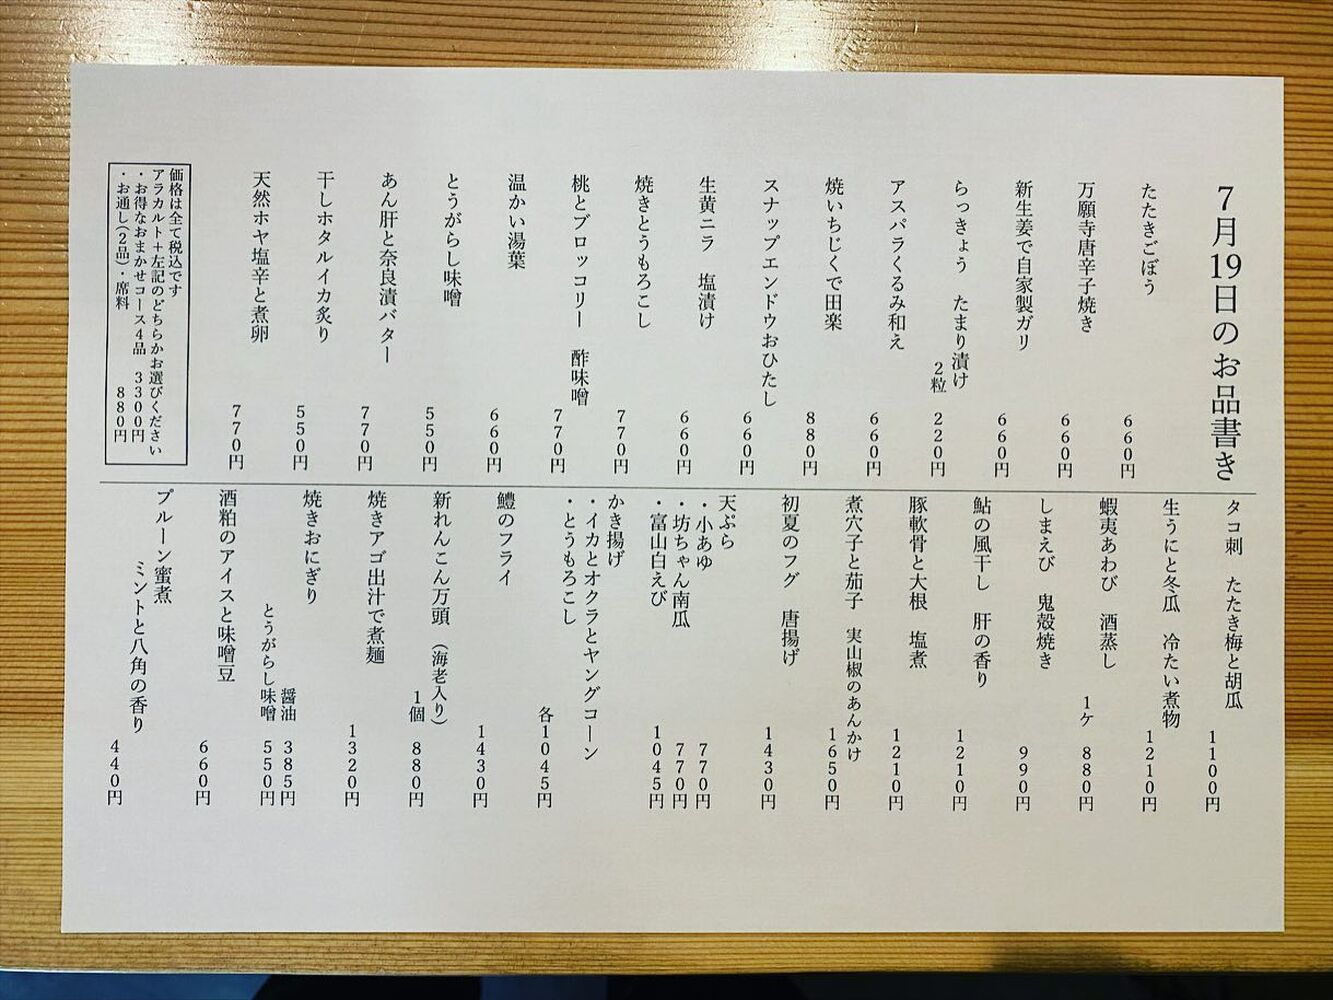 7月19日のお品書き
たたきごぼう
660円
万願寺唐辛子焼き
660円
新生姜で自家製ガリ
660円
らっきょう　たまり漬け
2粒　220円
アスパラくるみ和え
660円
焼いちじくで田楽
880円
スナップエンドウおひたし
660円
生黄ニラ　塩漬け
660円
焼きとうもろこし
770円
桃とブロッコリー　酢味噌
770円
温かい湯葉
660円
とうがらし味噌
550円
あん肝と奈良漬バター
770円
干しホタルイカ炙り
550円
天然ホヤ塩辛と煮卵
770円
価格は全て税込です
アラカルト+左記のどちらかお選びください
・お得なおまかせコース4品　3300円
・お通し(2品)・席料　880円
タコ刺　たたき梅と胡瓜
1100円
生うにと冬瓜　冷たい煮物
1210円
蝦夷あわび　酒蒸し
1ケ　880円
しまえび　鬼殻焼き
990円
鮎の風干し　肝の香り
1210円
豚軟骨と大根　塩煮
1210円
煮穴子と茄子　実山椒のあんかけ
1650円
初夏のフグ　唐揚げ
1430円
天ぷら
・小あゆ　770円
・坊ちゃん南瓜　770円
・富山白えび　1045円
かき揚げ
・イカとオクラとヤングコーン
・とうもろこし
各1045円
鱧のフライ
1430円
新れんこん万頭　(海老入り)
1個　880円
焼きアゴ出汁で煮麺
1320円
焼きおにぎり
醤油　385円
とうがらし味噌　550円
酒粕のアイスと味噌豆
660円
プルーン蜜煮
ミントと八角の香り
440円